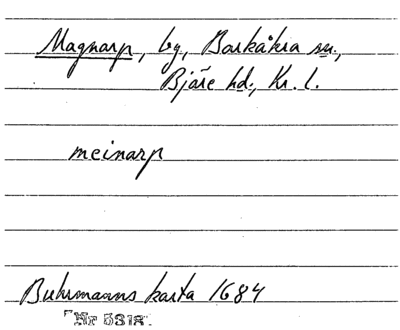 Magnarp, by, Barkåkra sn.,
Bjäre hd., Kr. l.
meinarp
Buhrmanns karta 1684
Nr 5318.